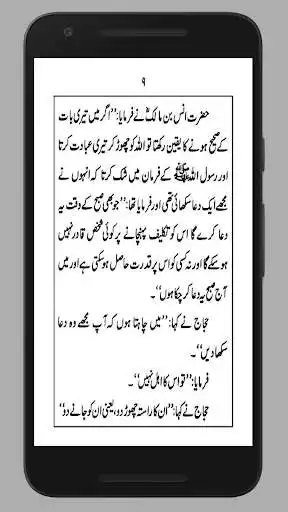 ۹
حضرت انس بن مالکؓ نے فرمایا: ’’اگر میں تیری بات
کے صحیح ہونے کا یقین رکھتا تو اللہ کو چھوڑ کر تیری عبادت کرتا
اور رسول اللہ ﷺ کے فرمان میں شک کرتا کہ انہوں نے
مجھے ایک دعا سکھائی تھی اور فرمایا تھا: ’’جو بھی صبح کے وقت یہ
دعا کرے گا اس کو تکلیف پہنچانے پر کوئی شخص قادر نہیں
ہو سکے گا اور نہ کسی کو اس پر قدرت حاصل ہو سکتی ہے اور میں
آج صبح یہ دعا کر چکا ہوں‘‘۔
حجاج نے کہا: ’’میں چاہتا ہوں کہ آپ مجھے وہ دعا
سکھا دیں‘‘۔
فرمایا: ’’تو اس کا اہل نہیں‘‘۔
حجاج نے کہا: ’’ان کا راستہ چھوڑ دو، یعنی ان کو جانے دو‘‘